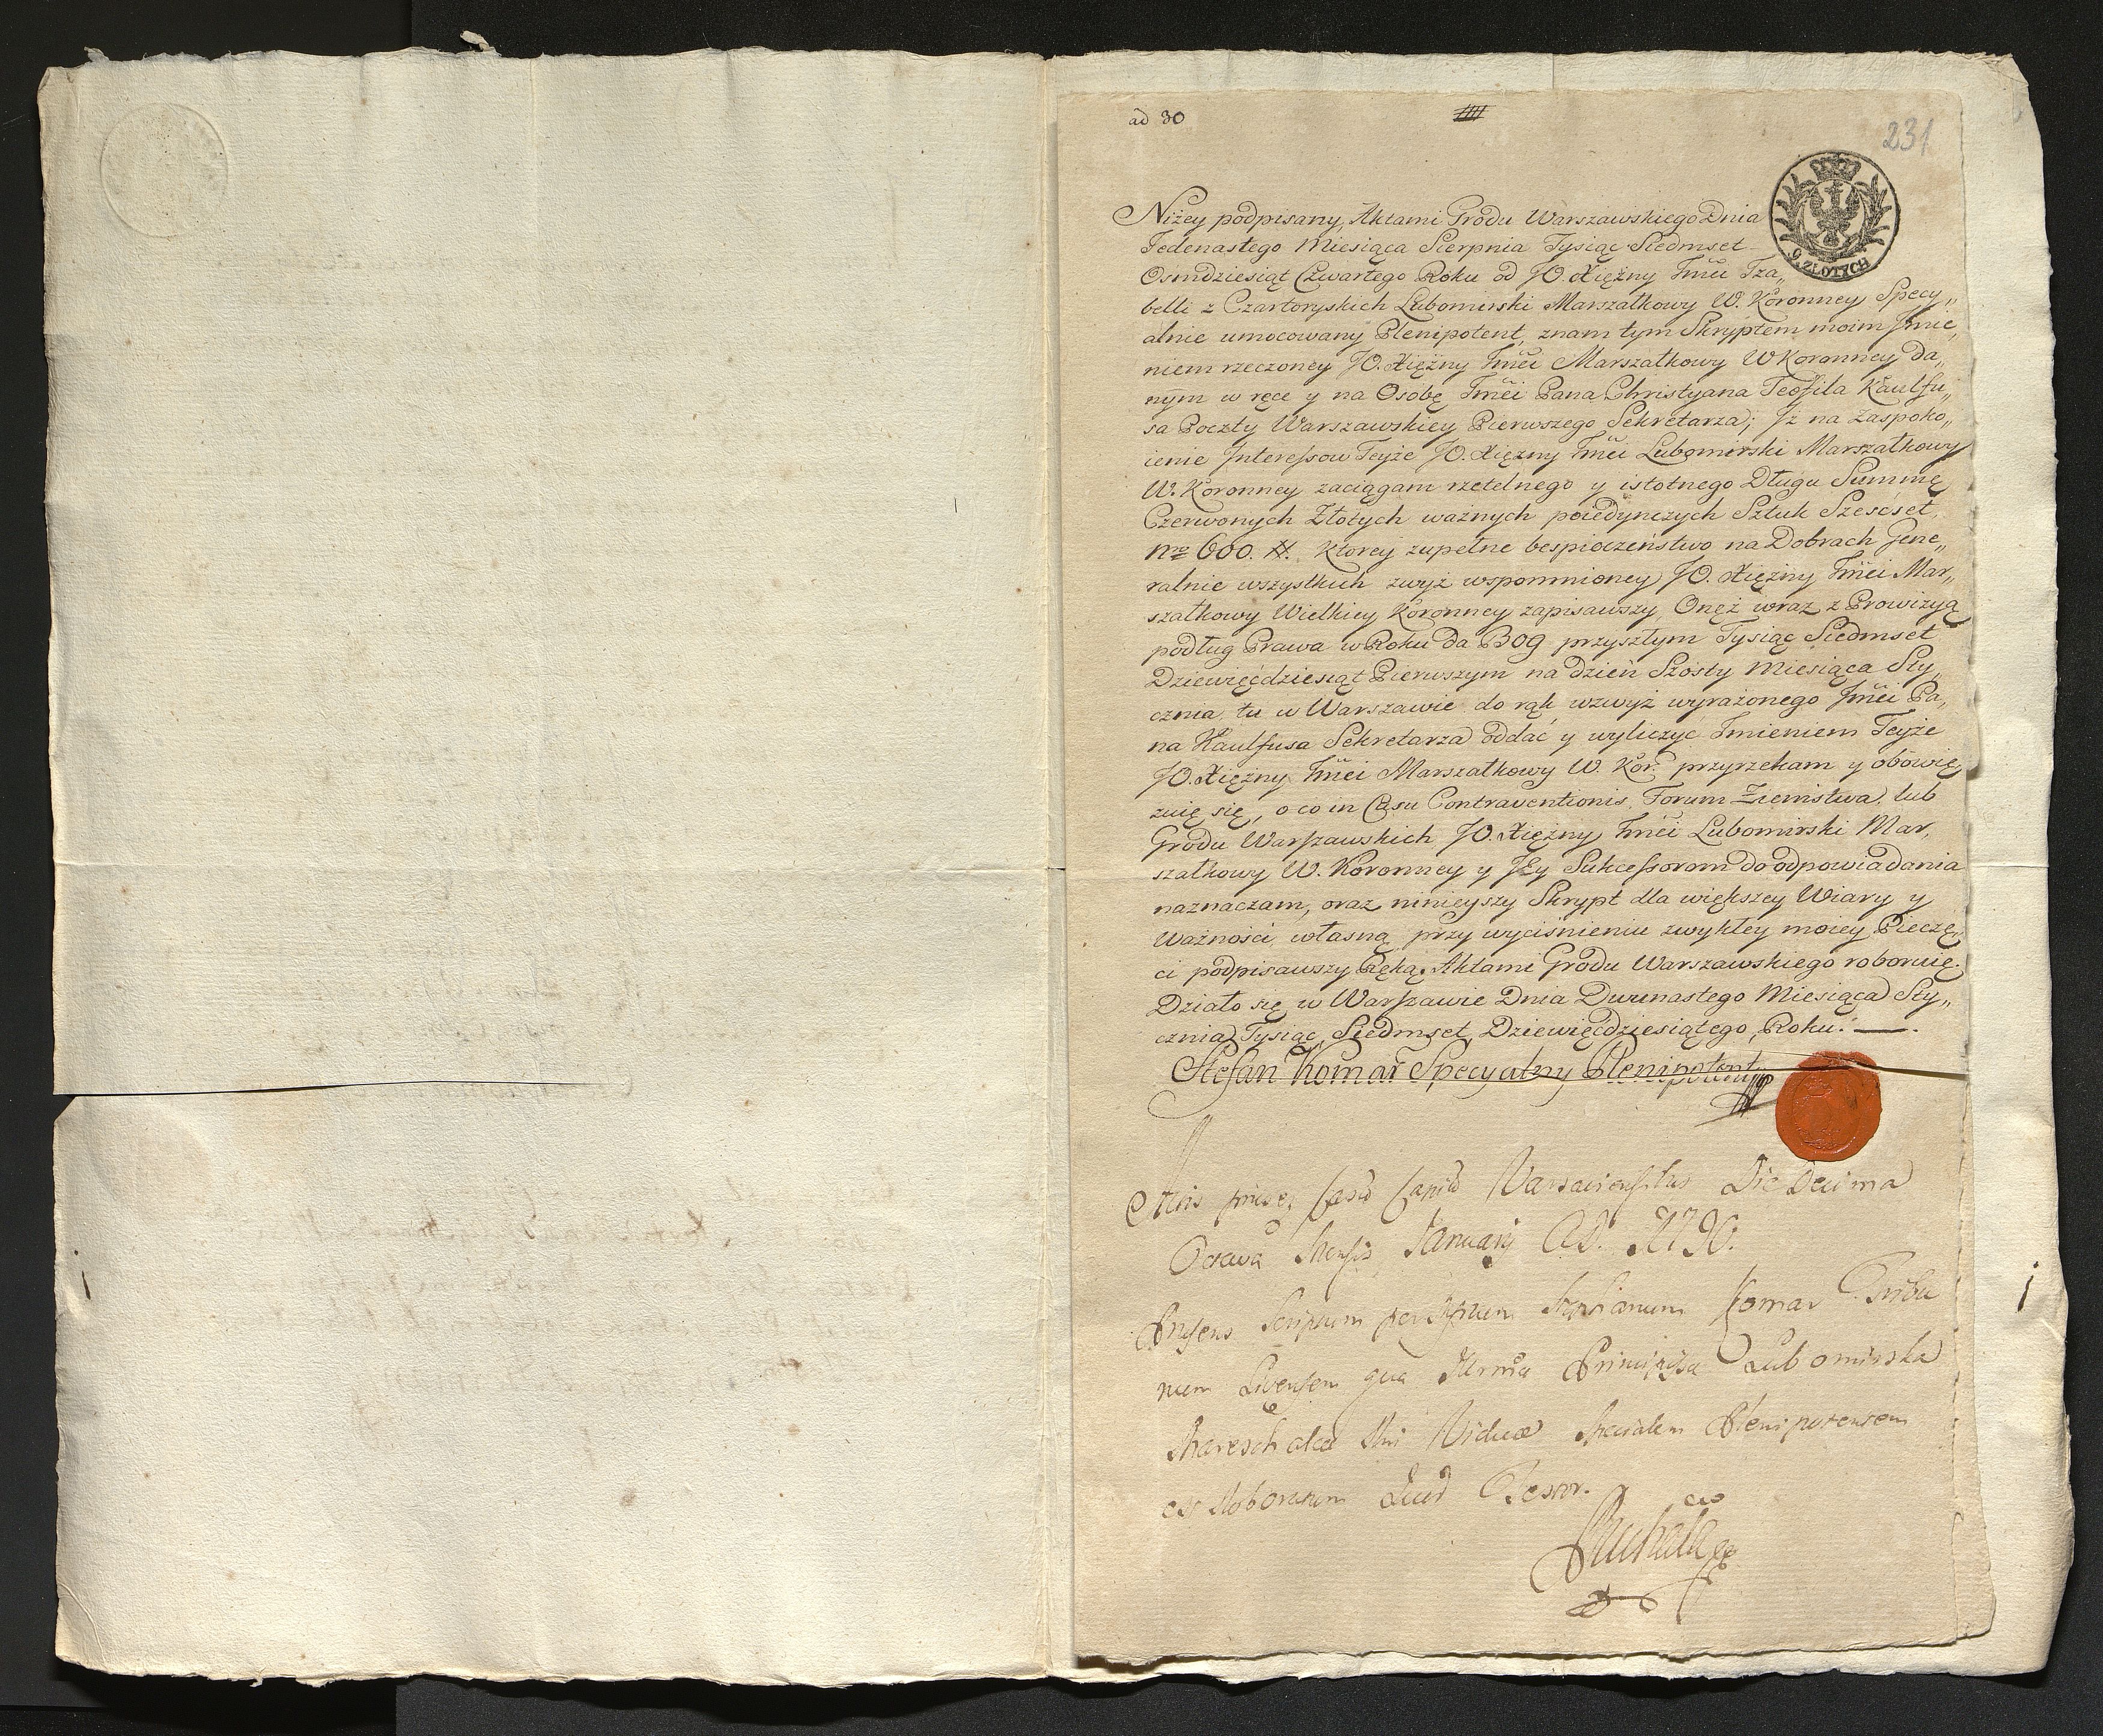 ad 30
231
9. ZŁOTYCH
Niżey podpisany, Aktami Grodu Warszawskiego Dnia
Jedenastego Miesiąca Sierpnia Tysiąc Siedmset
Osmdziesiąt Czwartego Roku od JO. Xiężny Jmci Iza„
belli z Czartoryskich Lubomirski Marszałkowy W. Koronney Specy„
alnie umocowany Plenipotent, znam tym Skryptem moim Jmie„
niem rzeczoney JO. Xiężny Jmci Marszałkowy W Koronney da„
nym w ręce y na Osobę Jmci Pana Christyana Teofila Kaulfu„
sa Poczty Warszawskiey Pierwszego Sekretarza; Jż na zaspoko„
ienie Interessow Teyże JO. Xiężny Jmci Lubomirski Marszałkowy
W. Koronney zaciągam rzetelnego y istotnego Długu Summę
Czerwonych Złotych ważnych poiedynczych Sztuk Szescset
nro 600. #. Ktorey zupełne bespieczeństwo na Dobrach Gene„
ralnie wszystkich zwyż wspomnioney JO. Xiężny Jmci Mar„
szałkowy Wielkiey Koronney zapisawszy, Onęż wraz z Prowizyą
podług Prawa w Roku da Bog przyszłym Tysiąc Siedmset
Dziewięćdziesiąt Pierwszym na dzień Szosty Miesiąca Sty„
cznia, tu w Warszawie do rąk wzwyż wyrażonego Jmci Pa„
na Kaulfusa Sekretarza oddać y wyliczyć Imieniem Teyże
JO. Xiężny Jmci Marszałkowy W. Kor: przyrzekam y obowię„
zuię się, o co in Casu Contraventionis, Forum Ziemstwa, lub
Grodu Warszawskich JO. Xiężny Jmci Lubomirski Mar„
szałkowy W. Koronney y JEy Sukcessorom do odpowiadania
naznaczam, oraz ninieyszy Skrypt dla większey Wiary y
Ważności, własną przy wyciśnieniu zwykłey moiey Pieczę„
ci podpisawszy Ręką, Aktami Grodu Warszawskiego roboruię.
Działo się w Warszawie Dnia Dwunastego Miesiąca Sty„
cznia Tysiąc Siedmset Dziewięćdziesiątego, Roku.
Stefan Komar Specyalny Plenipotent
Actis Varsaviensibus Die Decima
Octava Mensis January A.D. 1790.
Prasens Scriptum per Stephanum Komar Tribu
num qua Principisa Lubomirska
Mareschalca Viduæ Specialem Plenipotentem
est Roboratum